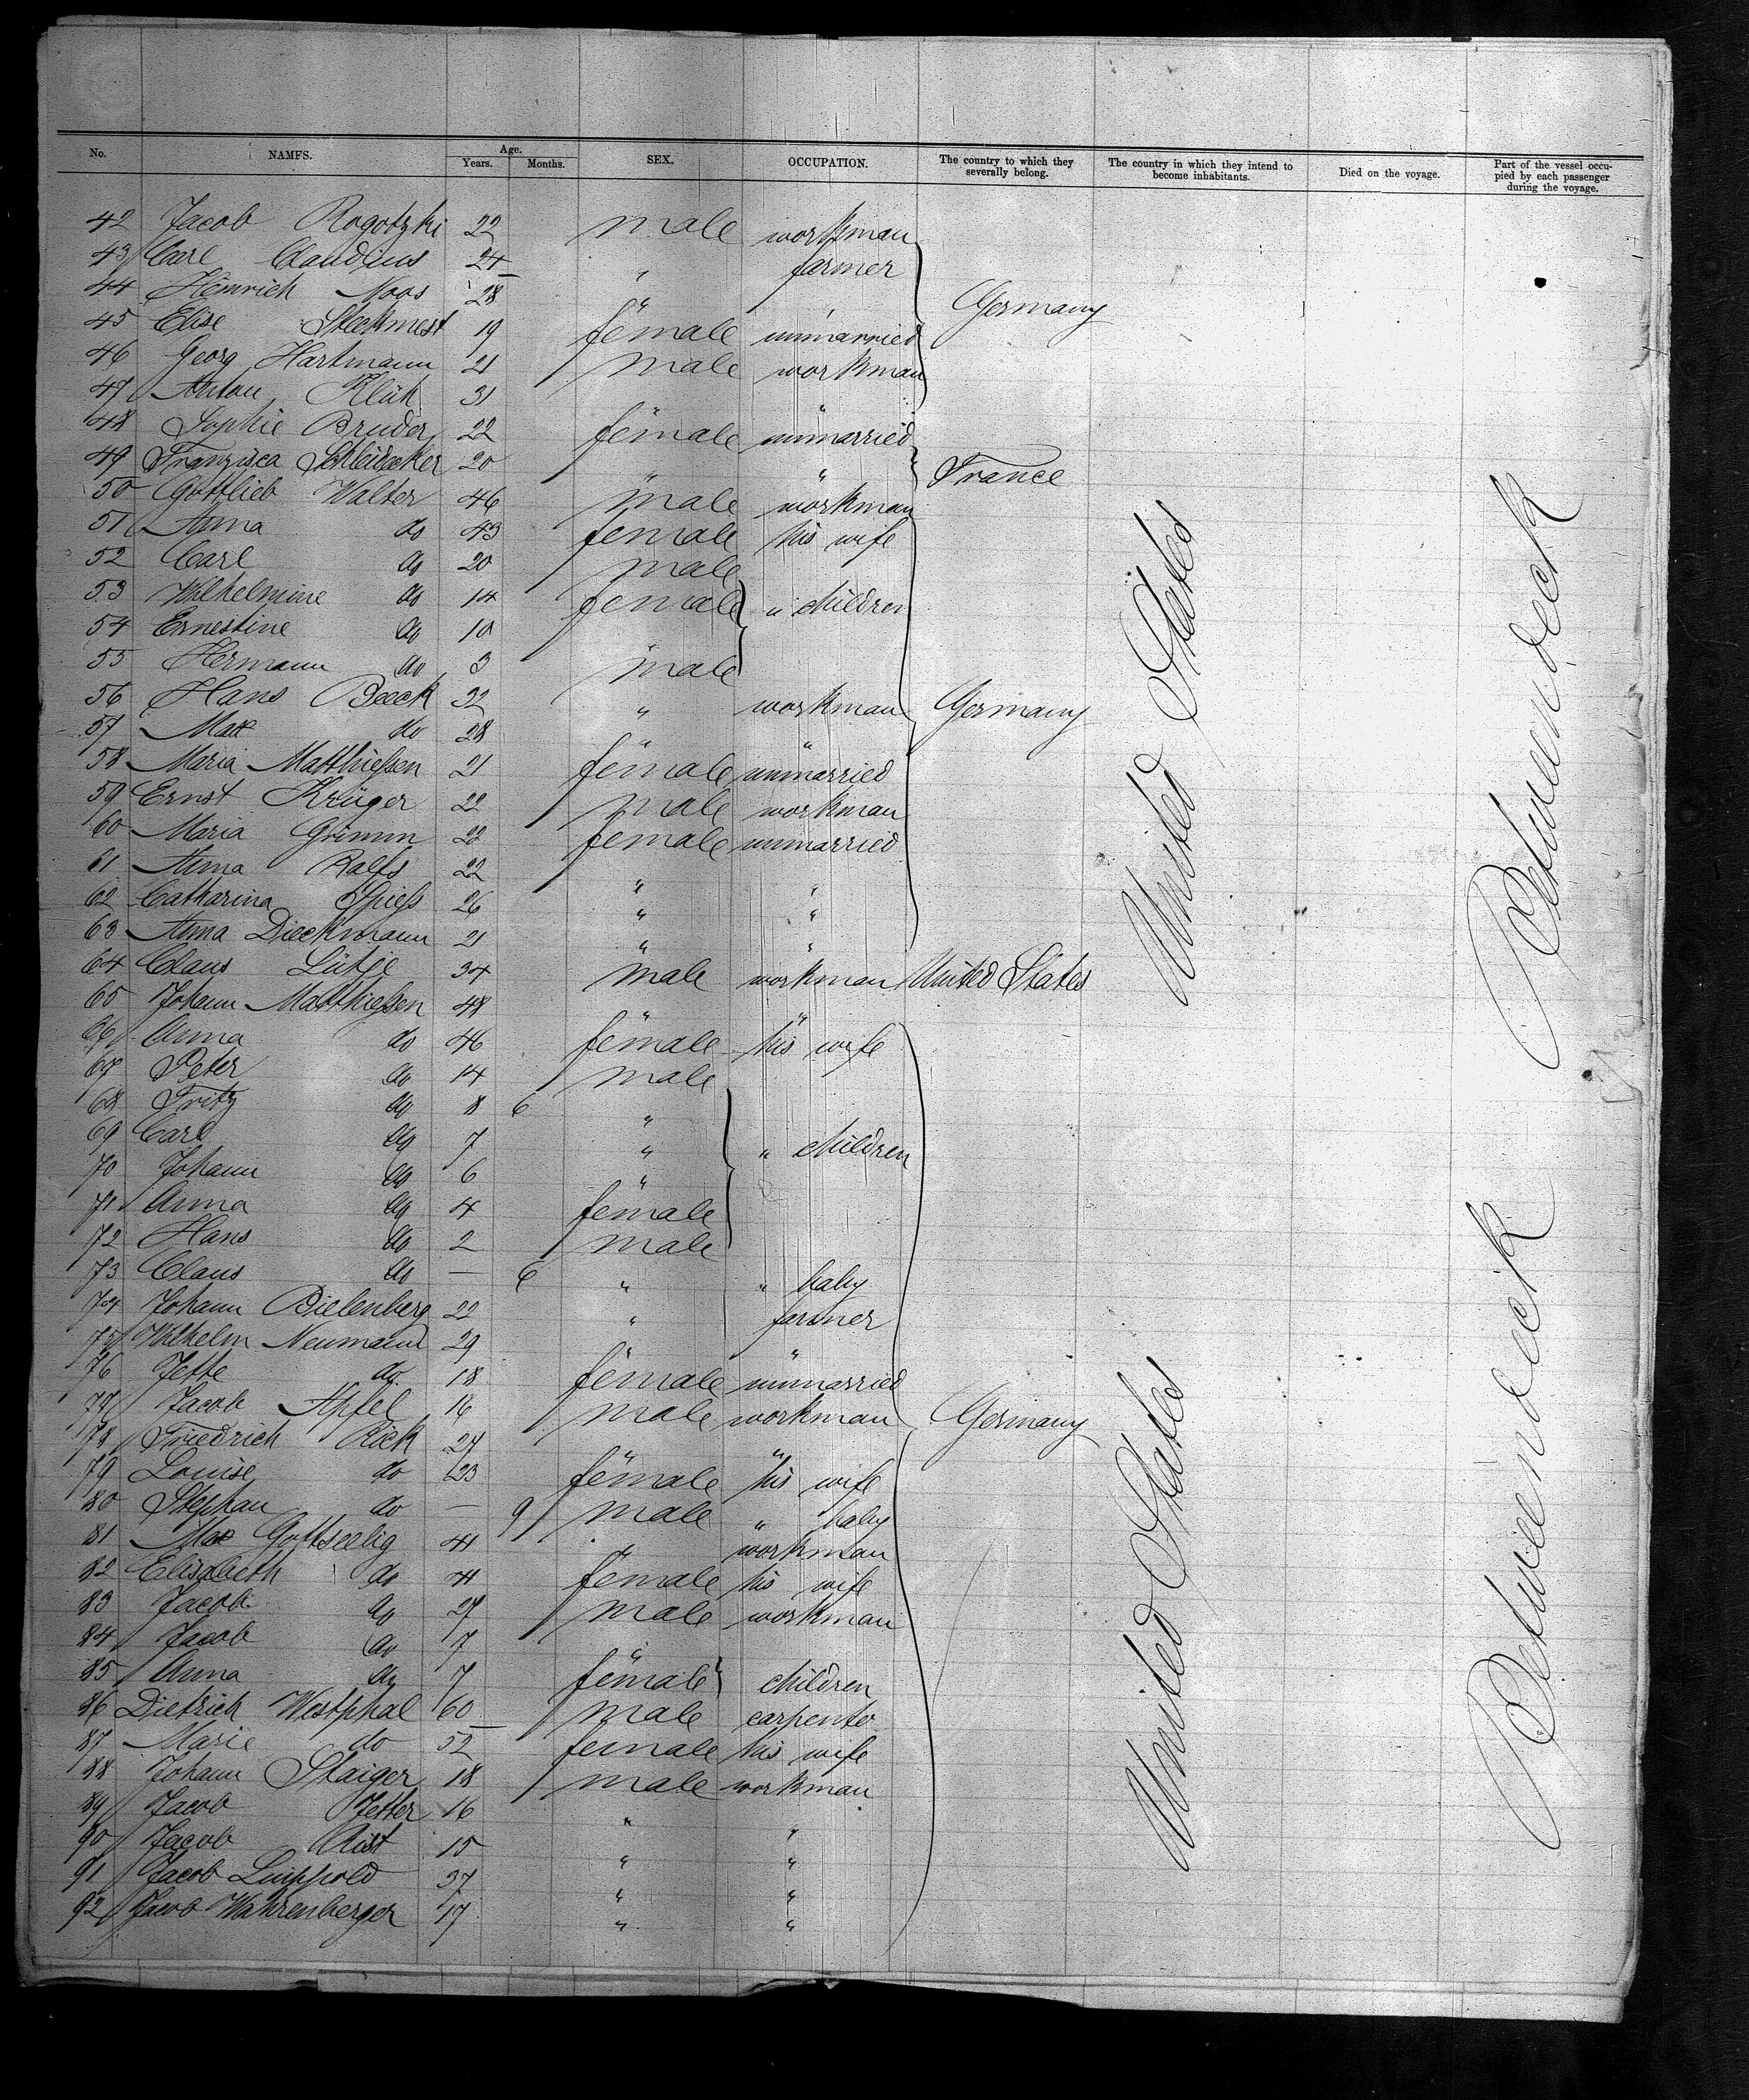 No. NAMES. Age. Years. Months. SEX. OCCUPATION. The country to which they severally belong. The country in which they intend to become inhabitants. Died on the voyage. Part of the vessel occupied by each passenger during the voyage.
42 Jacob Rogotzki 22 male workman
43 Carl Claudius 24 " farmer
44 Heinrich Moos 28 " " Germany
45 Elise Steckmest 19 female unmarried
46 Georg Hartmann 21 male workman
47 Anton Klük 31 " "
48 Sophie Bruder 22 female unmarried
49 Franzisca 20 " " France
50 Gottlieb Walter 46 male workman
51 Anna do 43 female his wife
52 Carl do 20 male
53 Wilhelmine do 14 female " children
54 Ernestine do 10 "
55 Hermann do 3 male
56 Hans Beeck 32 " workman Germany
57 Max do 28 " "
58 Maria Matthießen 21 female unmarried
59 Ernst Krüger 22 male workman
60 Maria Grimm 22 female unmarried
61 Anna Ralfs 22 " "
62 Catharina Spieß 26 " "
63 Anna Dieckmann 21 " "
64 Claus Lütje 34 male workman United States
65 Johann Matthießen 48 " "
66 Anna do 46 female his wife
67 Peter do 14 male
68 Fritz do 8 6 "
69 Carl do 7 " " children
70 Johann do 6 "
71 Anna do 4 female
72 Hans do 2 male
73 Claus do — 6 " " baby
74 Johann Bielenberg 22 " farmer
75 Wilhelm Neumann 29 " "
76 Jette do 18 female unmarried
77 Jacob Apfel 16 male workman Germany
78 Friedrich Rick 27 " "
79 Louise do 23 female his wife
80 Stephan do — 9 male " baby
81 Max Gottseelig 41 " workman
82 Elisabeth do 41 female his wife
83 Jacob do 27 male workman
84 Jacob do 7 "
85 Anna do 7 female children
86 Dietrich Westphal 60 male carpenter
87 Marie do 52 female his wife
88 Johann Staiger 18 male workman
89 Jacob Jetter 16 " "
90 Jacob Rist 15 " "
91 Jacob Luippold 37 " "
92 Jacob Wahrenberger 17 " "
United States
Between deck
United States
Between deck